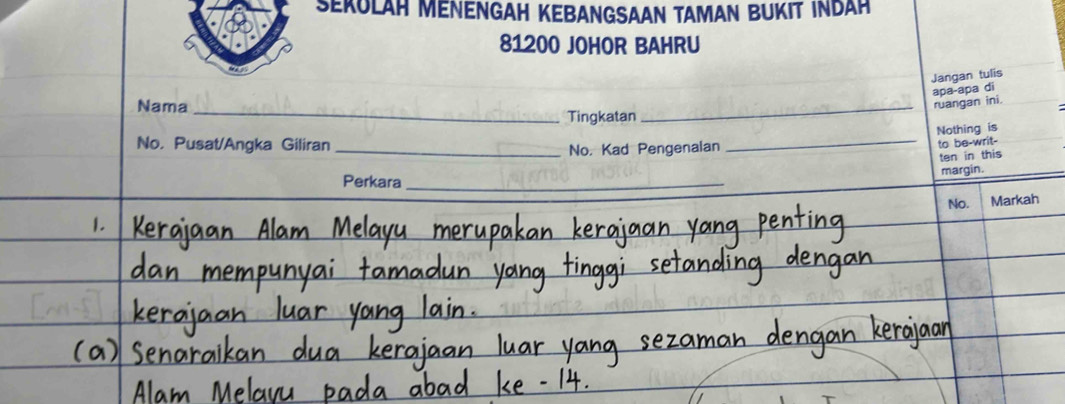 SEKOLAH MENENGAH KEBANGSAAN TAMAN BUKIT INDAH
81200 JOHOR BAHRU
Jangan tulis
apa-apa di
ruangan ini.
Nama
Tingkatan
Nothing is
to be-writ-
ten in this
margin.
No. Pusat/Angka Giliran
No. Kad Pengenalan
Perkara
No. Markah
1. Kerajaan Alam Melayu merupakan kerajaan yang penting
dan mempunyai tamadun yang tinggi setanding dengan
kerajaan luar yang lain.
(a) Senaraikan dua kerajaan luar yang sezaman dengan kerajaan
Alam Melayu pada abad ke-14.